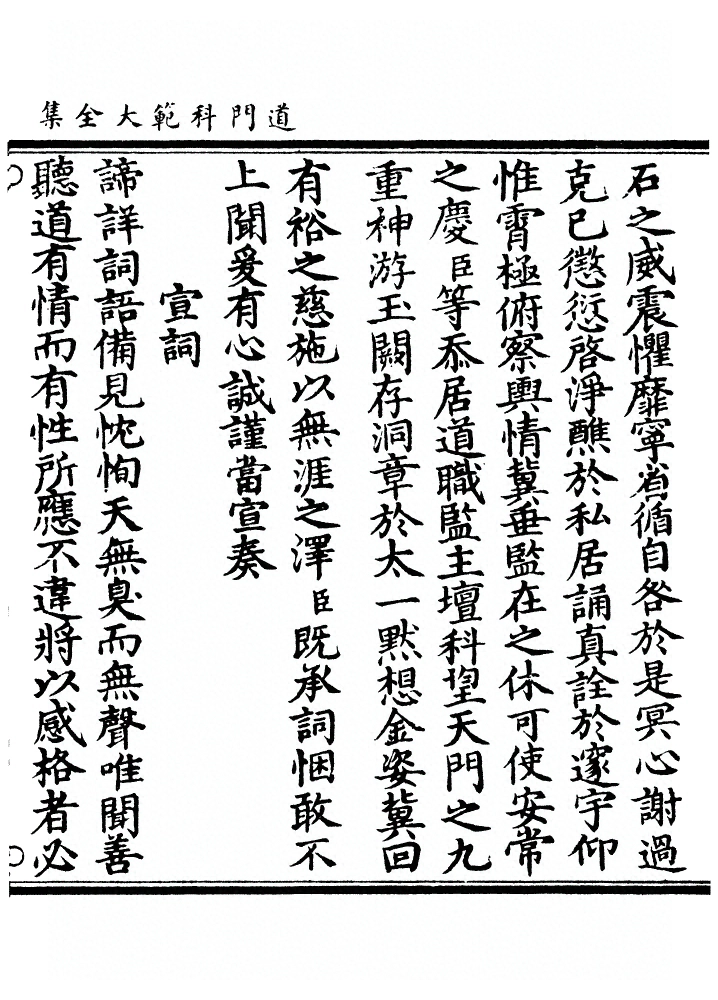 道門科範大全集
石之威震懼靡寧省循自咎於是冥心謝過
克己懲愆啓淨醮於私居誦真詮於邃宇仰
惟霄極俯察輿情冀垂監在之休可使安常
之慶臣等忝居道職監主壇科望天門之九
重神游玉闕存洞章於太一黙想金姿冀回
有裕之慈施以無涯之澤臣既承詞悃敢不
上聞爰有心誠謹當宣奏
宣詞
諦詳詞語備見忱恂天無臭而無聲唯聞善
聽道有情而有性所應不違將以感格者必